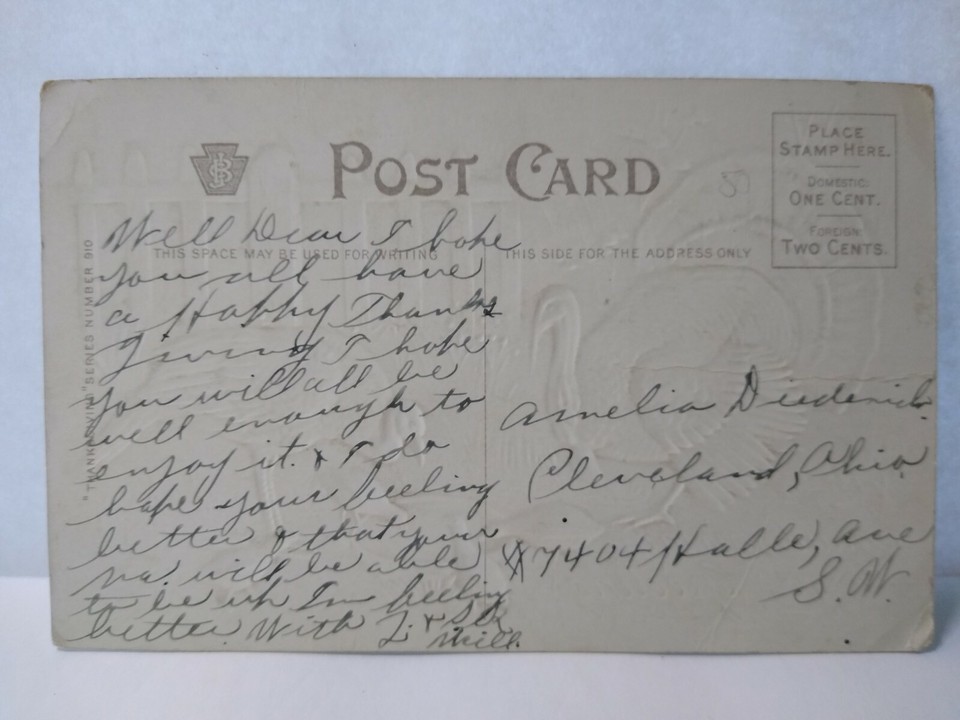 POST CARD
PLACE
STAMP HERE.
DOMESTIC:
ONE CENT.
FOREIGN:
TWO CENTS.
THIS SPACE MAY BE USED FOR WRITING
THIS SIDE FOR THE ADDRESS ONLY
"THANKSGIVING" SERIES NUMBER 910
Well Dear I hope
you all have
a Happy Thanks
giving I hope
you will all be
well enough to
enjoy it. & I do
hope your feeling
better & that your
ma. will be able
to be up Im feeling
better. With L. &
Amelia Diederich
Cleveland, Ohio
7404 Halle, Ave
S. W.